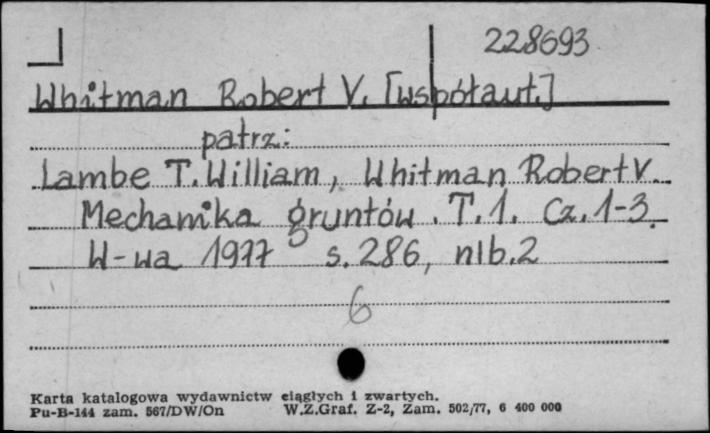 228693
Whitman Robert V. [współaut.]
patrz:
Lambe T. William, Whitman Robert V.
Mechanika gruntów. T.1. Cz.1-3.
W-wa 1977 s. 286, nlb. 2
6
Karta katalogowa wydawnictw ciągłych i zwartych.
Pu-B-144 zam. 567/DW/On W.Z.Graf. Z-2, Zam. 502/77, 6 400 000